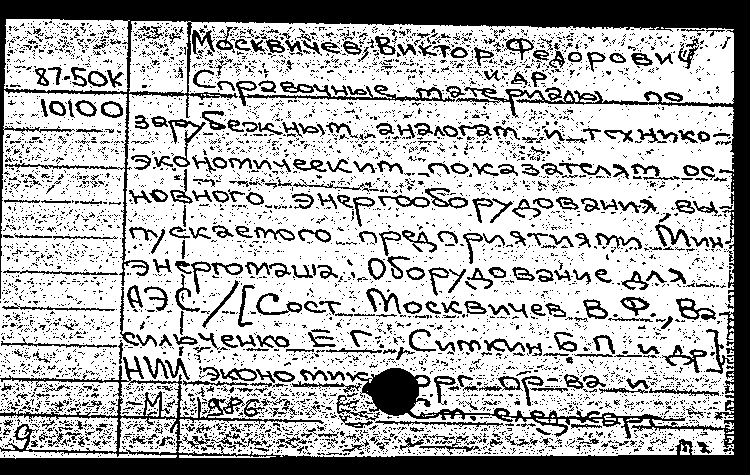 Москвичев, Виктор Федорович
и др.
87-50К
Справочные материалы по
10100
зарубежным аналогам и технико-
экономическим показателям ос-
новного энергооборудования, вы-
пускаемого предприятиями Мин-
энергомаша: Оборудование для
АЭС / [Сост. Москвичев В.Ф., Ва-
сильченко Е.Г., Ситкин Б.П. и др.]
НИИ экономик орг. пр-ва и
М, 1986
См. след. карт.
9